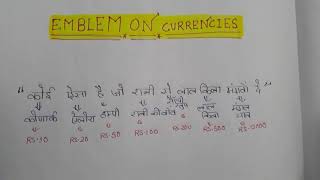 EMBLEM ON CURRENCIES
"कोई ऐसा है जो रानी से लाल किला मंगाये"
कोणार्क ऐलोरा हम्पी रानी की वाव सांची स्तूप लाल किला मंगल यान
RS-10 RS-20 RS-50 RS-100 RS-200 RS-500 RS-2000